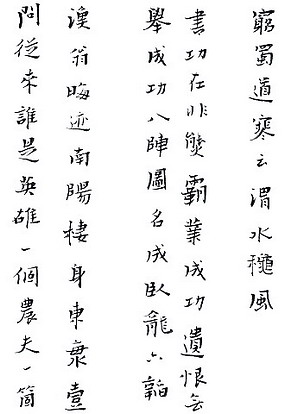 問從來誰是英雄一個農夫一箇
漁翁晦迹南陽棲身東海壹
舉成功八陣圖名成臥龍六韜
書功在非熊霸業成功遺恨無
窮蜀道寒云渭水穐風